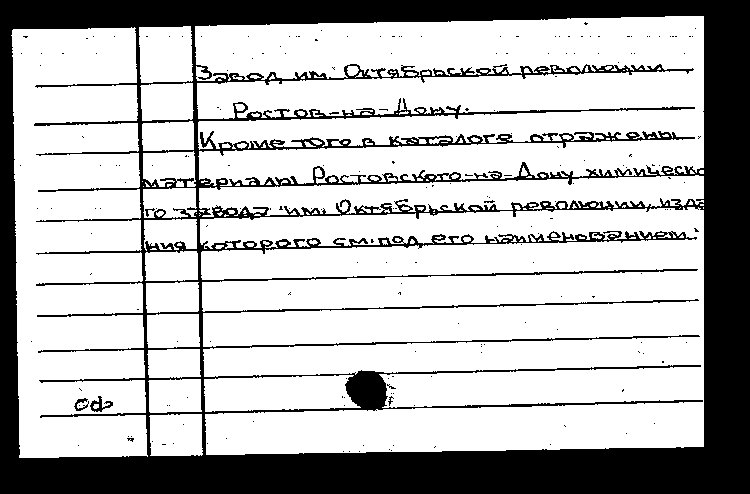 Завод им. Октябрьской революции,
Ростов-на-Дону.
Кроме того в каталоге отражены
материалы Ростовского-на-Дону химическо
го завода им. Октябрьской революции, изда
ния которого см. под его наименованием.